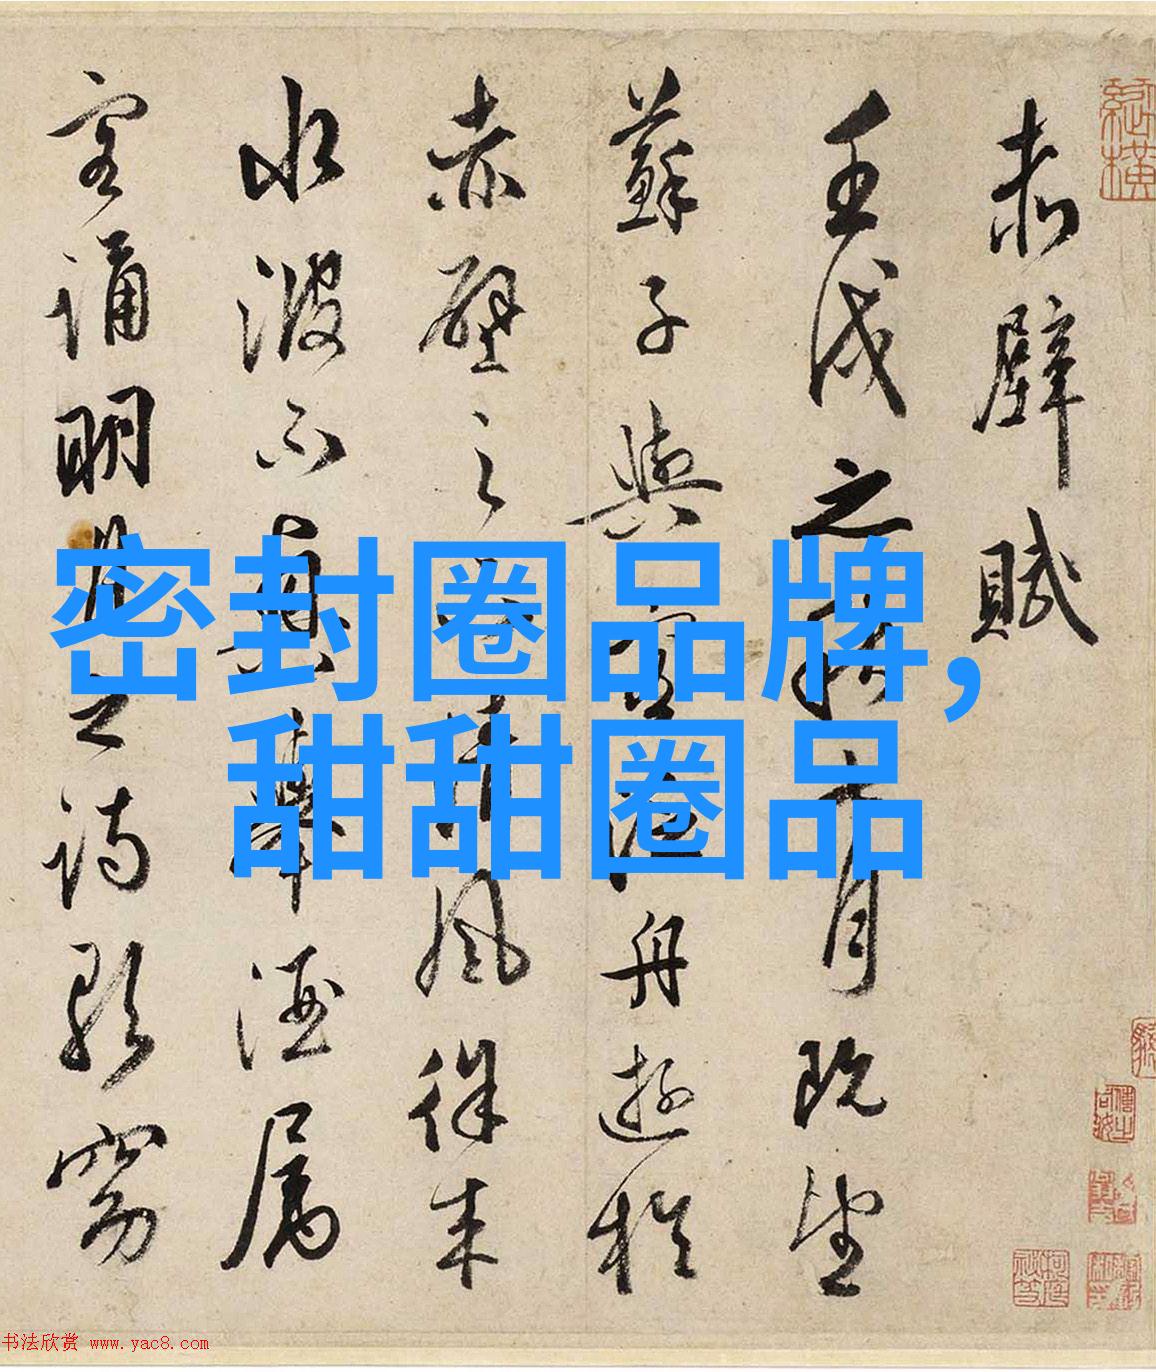 赤壁賦
壬戌之秋七月既望
蘇子與客泛舟遊於
赤壁之下清風徐来
水波不興舉酒属
客誦明月之詩歌窈
密封圈品牌,
甜甜圈品
书法欣赏 www.yac8.com